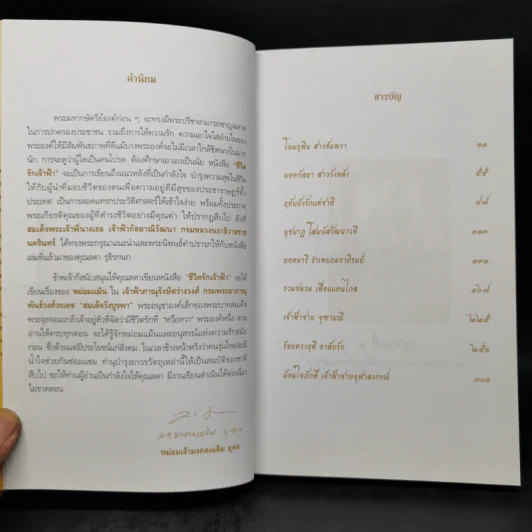 คำนิยม
พระมหากษัตริย์องค์ก่อน ๆ จะทรงมีพระปรีชาสามารถชาญฉลาด
ในการปกครองประชาชน รวมถึงการให้ความรัก ความเอาใจใส่ฝ่ายในของ
พระองค์ให้มีสัมพันธภาพที่ดีแม้บางพระองค์จะไม่มีเวลาใกล้ชิดนางในมาก
นัก การจะดูว่าผู้ใดเป็นคนโปรด ต้องศึกษาเอาเองเป็นนัย หนังสือ "ชีวิต
รักเจ้าฟ้า" จะเป็นการเขียนถึงแนวหลังที่เป็นกำลังใจ บำรุงความสุขในชีวิต
ให้กับผู้นำที่มอบชีวิตของตนเพื่อความอยู่ดีมีสุขของประชาราษฎร์ทั้ง
ประเทศ เป็นการสอดแทรกประวัติศาสตร์ให้เข้าใจง่าย พร้อมทั้งประกาศ
พระเกียรติคุณของผู้ที่ดำรงชีวิตอย่างมีคุณค่า ให้ปรากฏสืบไป ดังที่
สมเด็จพระเจ้าพี่นางเธอ เจ้าฟ้ากัลยาณิวัฒนา กรมหลวงนราธิวาสราช
นครินทร์ ได้ทรงพระกรุณาแนะนำและพระนิพนธ์คำปรารภให้กับหนังสือ
เล่มที่แล้วมาของคุณลดา รุธิรกนก
ข้าพเจ้ากำลังสนับสนุนให้คุณลดาเขียนหนังสือ "ชีวิตรักเจ้าฟ้า" จะได้
เขียนเรื่องของ หม่อมแม้น ใน เจ้าฟ้าภาณุรังษีสว่างวงศ์ กรมพระยาภาณุ
พันธุ์วงศ์วรเดช "สมเด็จวังบูรพา" พระอนุชาองค์เล็กของพระบาทสมเด็จ
พระจุลจอมเกล้าเจ้าอยู่หัวที่จัดว่ามีชีวิตรักที่ "หวือหวา" พระองค์หนึ่ง ตาม
อ่านให้ครบทุกตอน จะได้รู้จักหม่อมแม้นและอนุสรณ์แห่งความรักสมัย
ก่อน ซึ่งล้วนแต่มีประโยชน์แก่สังคม ในเวลาข้างหน้าหวังว่าคนรุ่นใหม่จะมี
น้ำใจช่วยกันซ่อมแซม ทำนุบำรุงถาวรวัตถุเหล่านี้ให้เป็นสมบัติของชาติ
สืบไป ขอให้ท่านผู้อ่านเป็นกำลังใจให้คุณลดา มีงานเขียนดำเนินได้ต่อเนื่อง
ไม่ขาดตอน
หม่อมเจ้ามงคลเฉลิม ยุคล
สารบัญ
โฉมยุพิน สาวจันทวา ๑๑
ยอดกัลยา สาววังหลัง ๕๕
ฤทัยยั่งรักแต่ชาติ ๘๗
นุชนาฏ โสมนัสวัฒนาวดี ๑๑๓
ยอดนารี รำเพยภมราภิรมย์ ๑๓๑
รวมช่วม เพื่อแดนไกล ๑๖๗
เจ้าฟ้าชาย จุฑามณี ๒๒๕
ร้อยดวงฤดี อาลัยรัก ๒๕๑
น้อมใจภักดิ์ เจ้าฟ้าชายจุฬาลงกรณ์ ๓๐๑